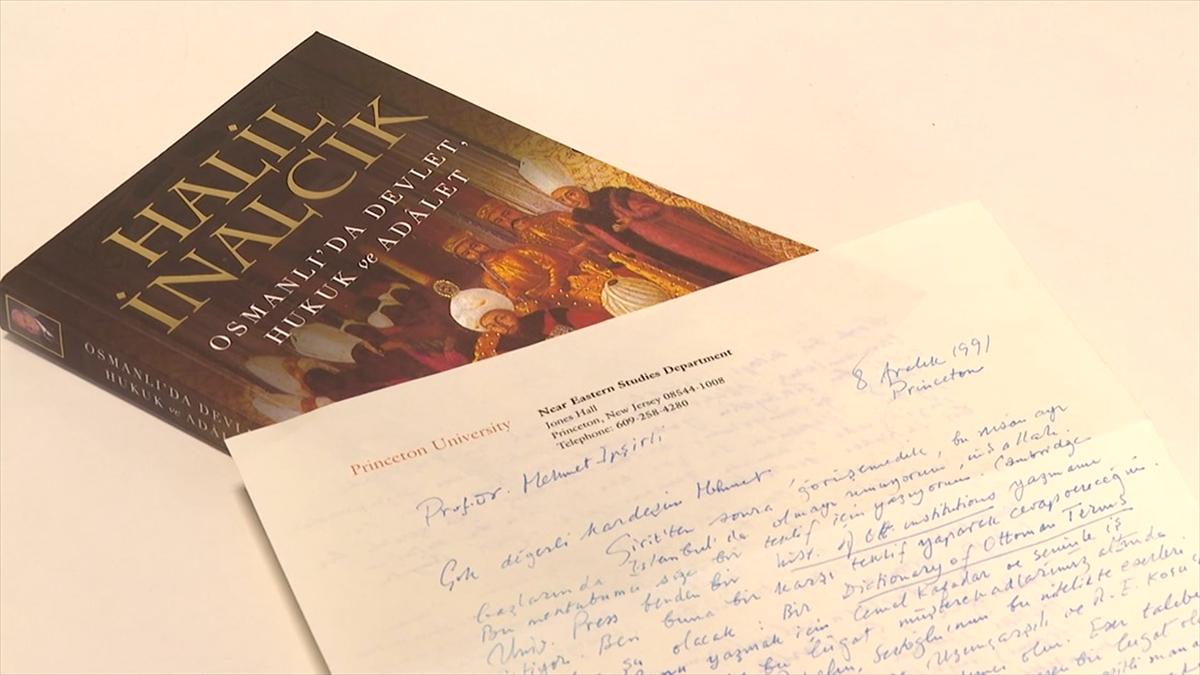 HALİL
İNALCIK
OSMANLI'DA DEVLET,
HUKUK ve ADÂLET
OSMANLI'DA DEVL
HUKUK ve ADÂL
Princeton University
Near Eastern Studies Department
Jones Hall
Princeton, New Jersey 08544-1008
Telephone: 609-258-4280
8 Aralık 1991
Princeton
Prof. Dr. Mehmet İpşirli
Çok değerli kardeşim Mehmet
Girit'ten sonra görüşemedik, bu nisan ayı
başlarında İstanbul'da olmayı umuyorum, inşallah.
Bu mektubumu size bir teklif için yazıyorum. Cambridge
Univ. Press benden bir hist. of Ott. institutions yazmamı
istiyor. Ben buna bir karşı teklif yaparak cevap vereceğim.
şu olacak: Bir Dictionary of Ottoman Terms
yazmak için Cemal Kafadar ve seninle iş
bu lûgat müşterek adlarımız altında
Sertoğlu'nun bu nitelikte eserleri.
Uzunçarşılı ve R. E. Koçu,
olur. Eser taleb
bir lûgat